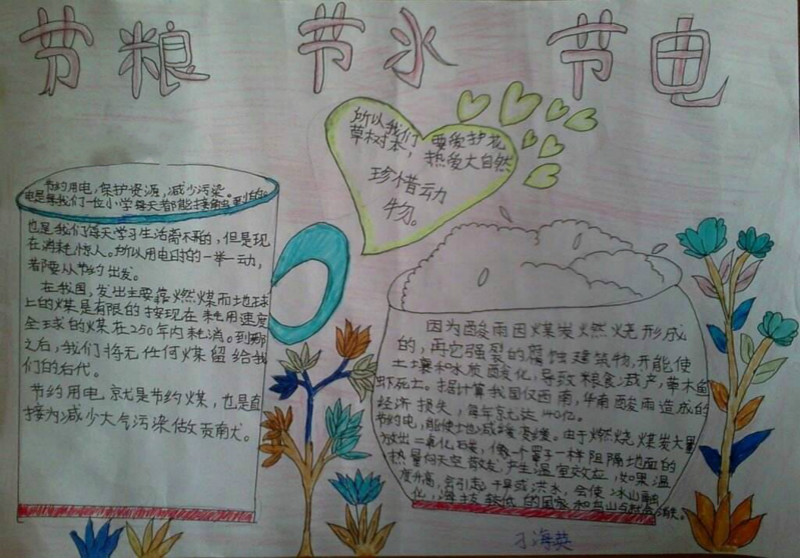 节粮 节水 节电
所以我们要爱护花
草树木，热爱大自然
珍惜动
物。
节约用电，保护资源，减少污染。
电是每我们一位小学每天都能接触到的。
也是我们每天学习生活离不开的，但是现
在消耗惊人。所以用电时的一举一动，
都要从节约出发。
在我国，发出主要靠燃煤而地球
上的煤是有限的按现在耗用速度
全球的煤在250年内耗消。到那
之后，我们将无任何煤留给我
们的后代。
节约用电就是节约煤，也是直
接为减少大气污染做贡献。
因为酸雨因煤炭燃烧形成
的，再它强裂的腐蚀建筑物，并能使
土壤和水质酸化，导致粮食减产，草木鱼
虾死亡。据计算我国仅西南，华南酸雨造成的
经济损失，每年就达140亿。
节约电，能使土地减
由于燃烧煤炭大量
放出二氧化碳，像一个罩子一样阻隔地面的
热量向天空散发，产生温室效应，如果温
度升高，会引起干旱或洪水，会使冰山融
化，海
的国家和
刁海英